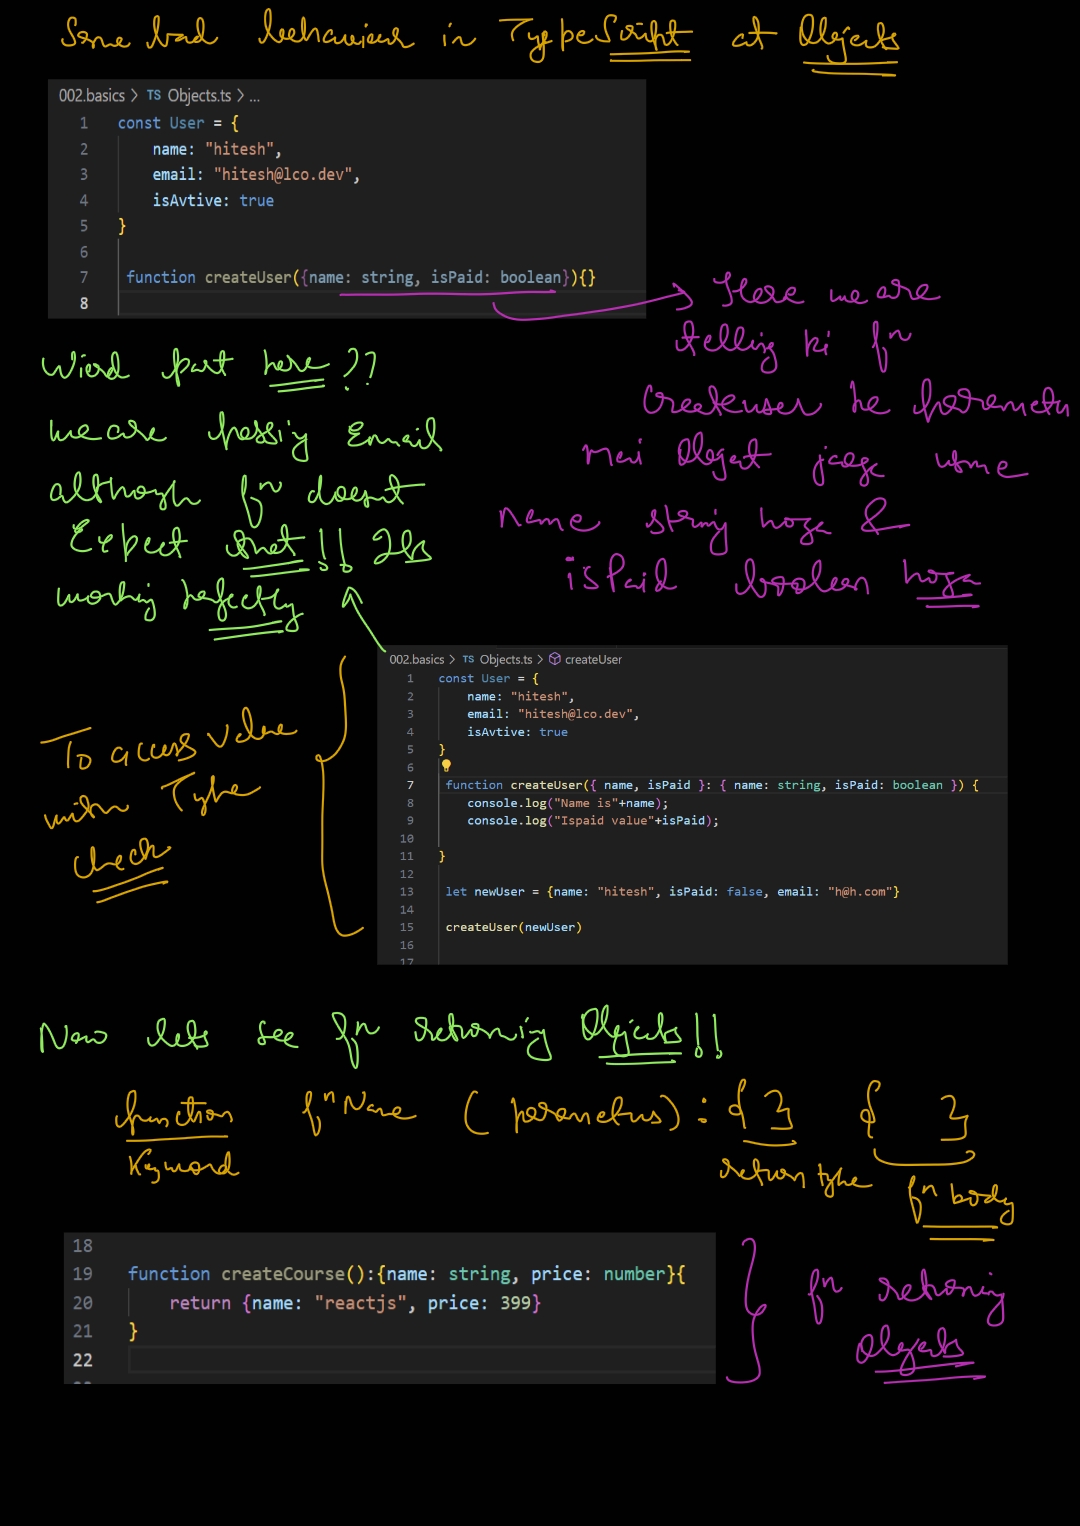 Some bad behaviour in TypeScript at Objects
002.basics > TS Objects.ts > ...
1 const User = {
2 name: "hitesh",
3 email: "hitesh@lco.dev",
4 isAvtive: true
5 }
6
7 function createUser({name: string, isPaid: boolean}){}
8
Here we are
telling ki fn
createuser ke parameter
mei Object jaege usme
name string hoga &
isPaid boolean hoga
Wierd part here ??
we are passing Email
although fn doesnt
Expect that !! Its
working perfectly
002.basics > TS Objects.ts > createUser
1 const User = {
2 name: "hitesh",
3 email: "hitesh@lco.dev",
4 isAvtive: true
5 }
6
7 function createUser({ name, isPaid }: { name: string, isPaid: boolean }) {
8 console.log("Name is"+name);
9 console.log("Ispaid value"+isPaid);
10
11 }
12
13 let newUser = {name: "hitesh", isPaid: false, email: "h@h.com"}
14
15 createUser(newUser)
16
17
To access value
with Type
check
Now lets see fn returning Objects!!
function fn Name ( parameters ) : { } { }
Keyword
return type
fn body
18
19 function createCourse():{name: string, price: number}{
20 return {name: "reactjs", price: 399}
21 }
22
fn returning
Objects